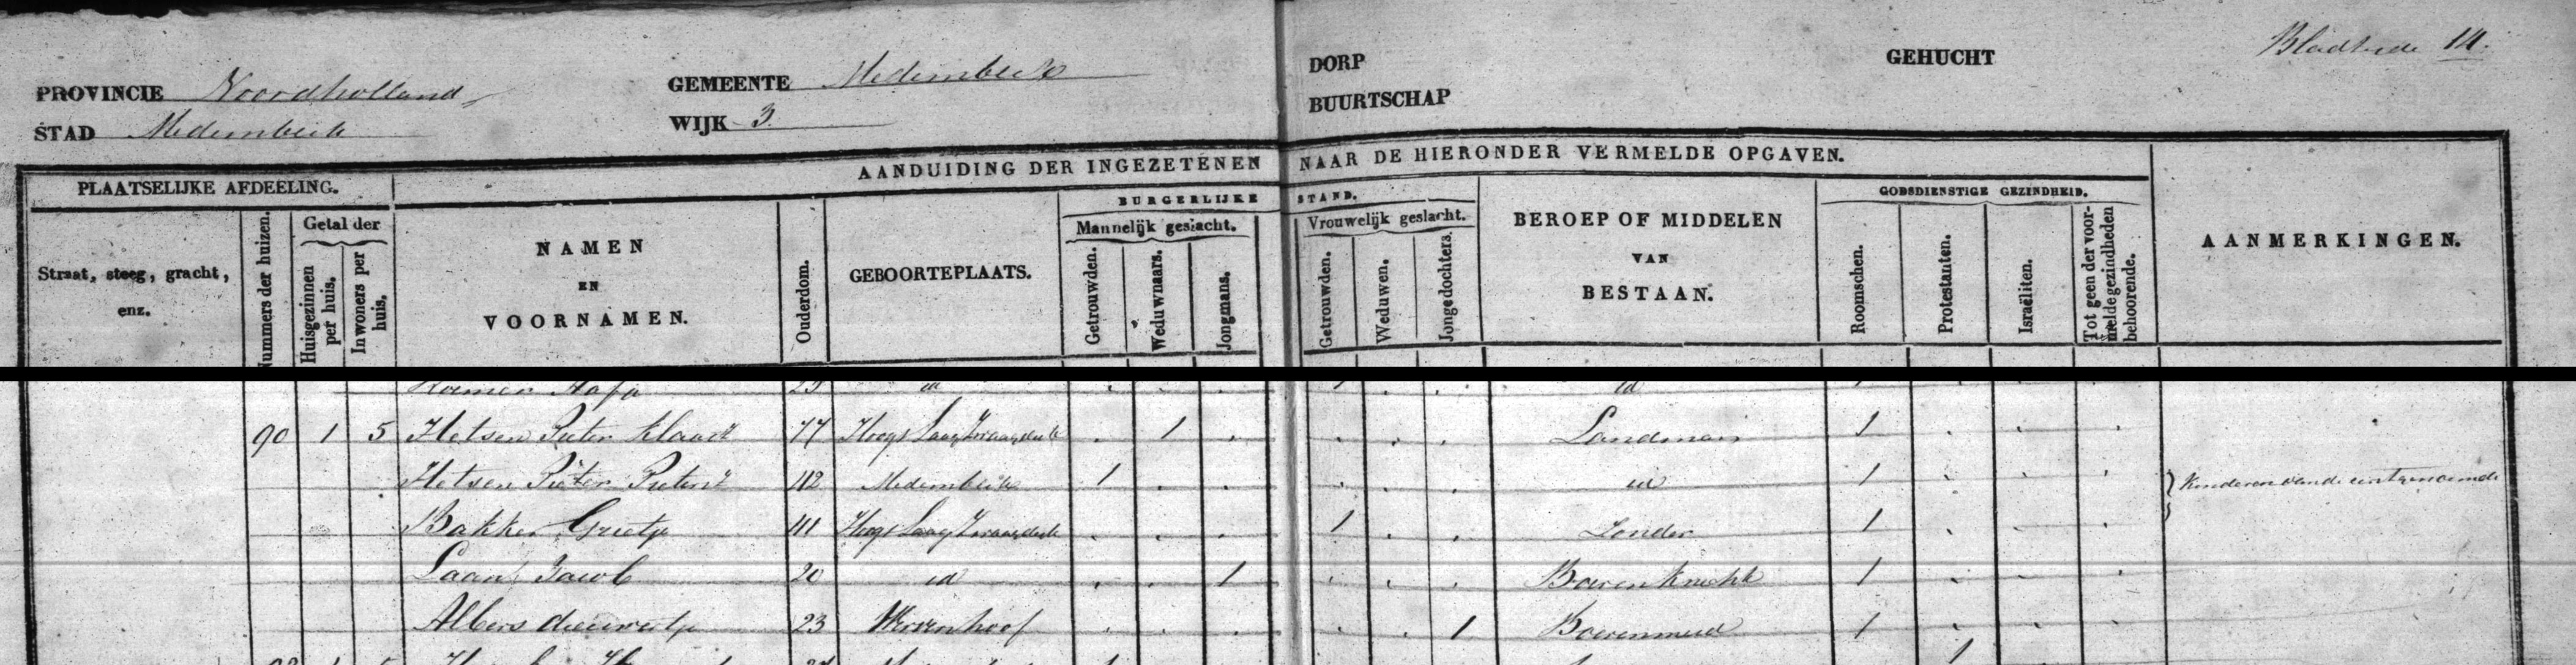 Bladzijde 14.
PROVINCIE Noordholland GEMEENTE Medemblik DORP GEHUCHT
STAD Medemblik WIJK 3. BUURTSCHAP
AANDUIDING DER INGEZETENEN NAAR DE HIERONDER VERMELDE OPGAVEN.
PLAATSELIJKE AFDEELING.
BURGERLIJKE STAND.
GODSDIENSTIGE GEZINDHEID.
Straat, steeg, gracht, enz.
Nummers der huizen.
Getal der
Huisgezinnen per huis.
Inwoners per huis.
NAMEN
EN
VOORNAMEN.
Ouderdom.
GEBOORTEPLAATS.
Mannelijk geslacht.
Getrouwden.
Weduwnaars.
Jongmans.
Vrouwelijk geslacht.
Getrouwden.
Weduwen.
Jongedochters.
BEROEP OF MIDDELEN
VAN
BESTAAN.
Roomschen.
Protestanten.
Israëliten.
Tot geen der voormelde gezindheden behoorende.
AANMERKINGEN.
90 1 5 Hetsen Pieter Klaasz 77 Hoogs Laag Zwaagdeck . 1 . . . . Landman 1 . . .
Hetsen Pieter Pietersz 42 Medemblik 1 . . . . . id 1 . . . } Kinderen van de eerstgenoemde
Bakker Grietje 41 Hoogs Laag Zwaagdeck . . . 1 . . Zonder 1 . . .
Laan Jacob 20 id . . 1 . . . Boerenknecht 1 . . .
Albers dieuwertje 23 Wervershoof . . . . . 1 Boerenmeid 1 . . .